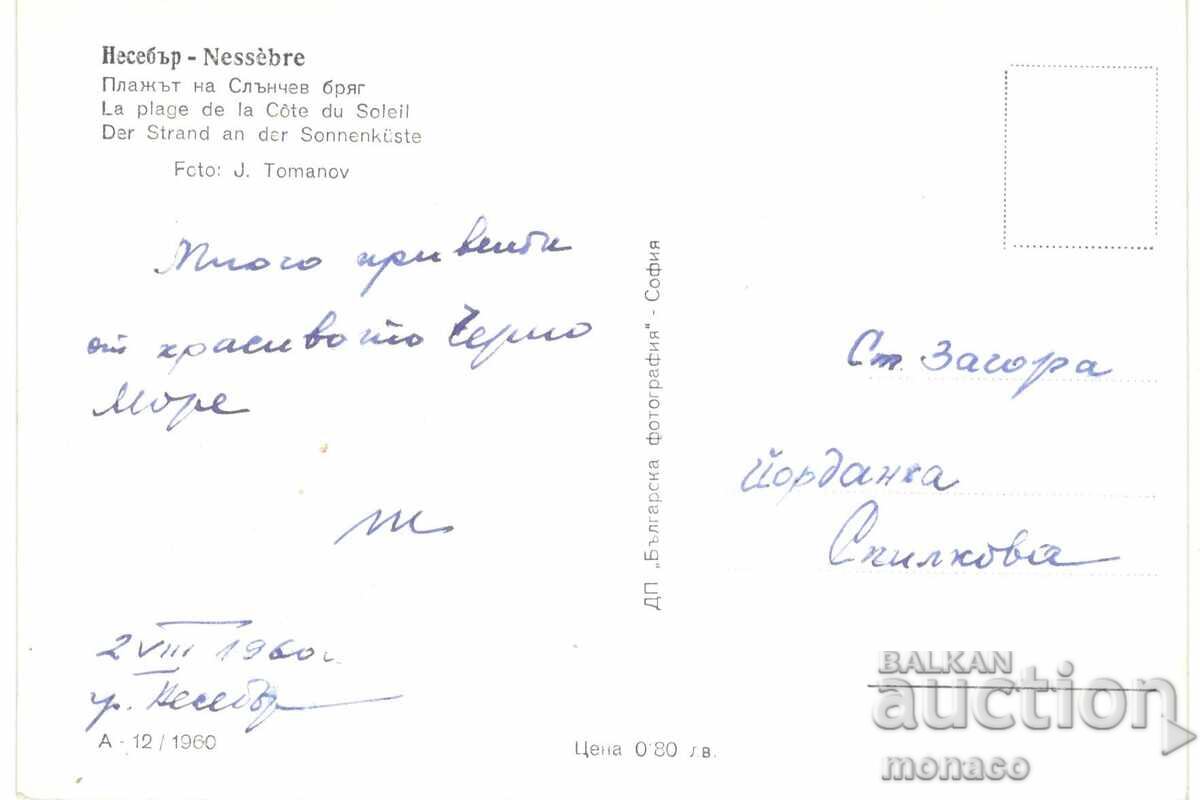 Несебър - Nessèbre
Плажът на Слънчев бряг
La plage de la Côte du Soleil
Der Strand an der Sonnenküste
Foto: J. Tomanov
Много привети
от красивото Черно
Море
2 VIII 1960 г.
гр. Несебър
А - 12 / 1960
ДП „Българска фотография" - София
Цена 0'80 лв.
Ст. Загора
Йорданка
Спилкова
BALKAN
auction
monaco